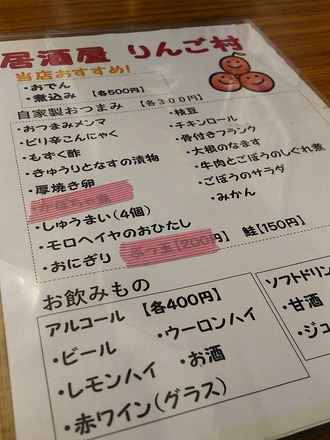 居酒屋 りんご村
当店おすすめ！
・おでん
・煮込み 【各500円】
自家製おつまみ 【各300円】
・おつまみメンマ
・ピリ辛こんにゃく
・もずく酢
・きゅうりとなすの漬物
・厚焼き卵
・しゅうまい(4個)
・モロヘイヤのおひたし
・おにぎり 【200円】 鮭【150円】
・枝豆
・チキンロール
・骨付きフランク
・大根のなます
・牛肉とごぼうのしぐれ煮
・ごぼうのサラダ
・みかん
お飲みもの
アルコール 【各400円】
・ビール
・レモンハイ
・赤ワイン(グラス)
・ウーロンハイ
・お酒
ソフトドリン
・甘酒
・ジュ